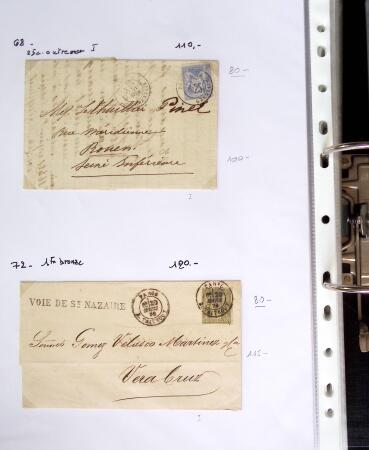 68- 110,-
25c. outremer I
80-
Mess Lethuillier Pinel
rue Méridienne
Rouen
Seine Inférieure
100-
I
72- 1 fr bronze 180.-
PARIS
PARIS
VOIE DE ST NAZAIRE
80-
Señores Gomez Velasco Martinez y Ca
115-
Vera Cruz
I